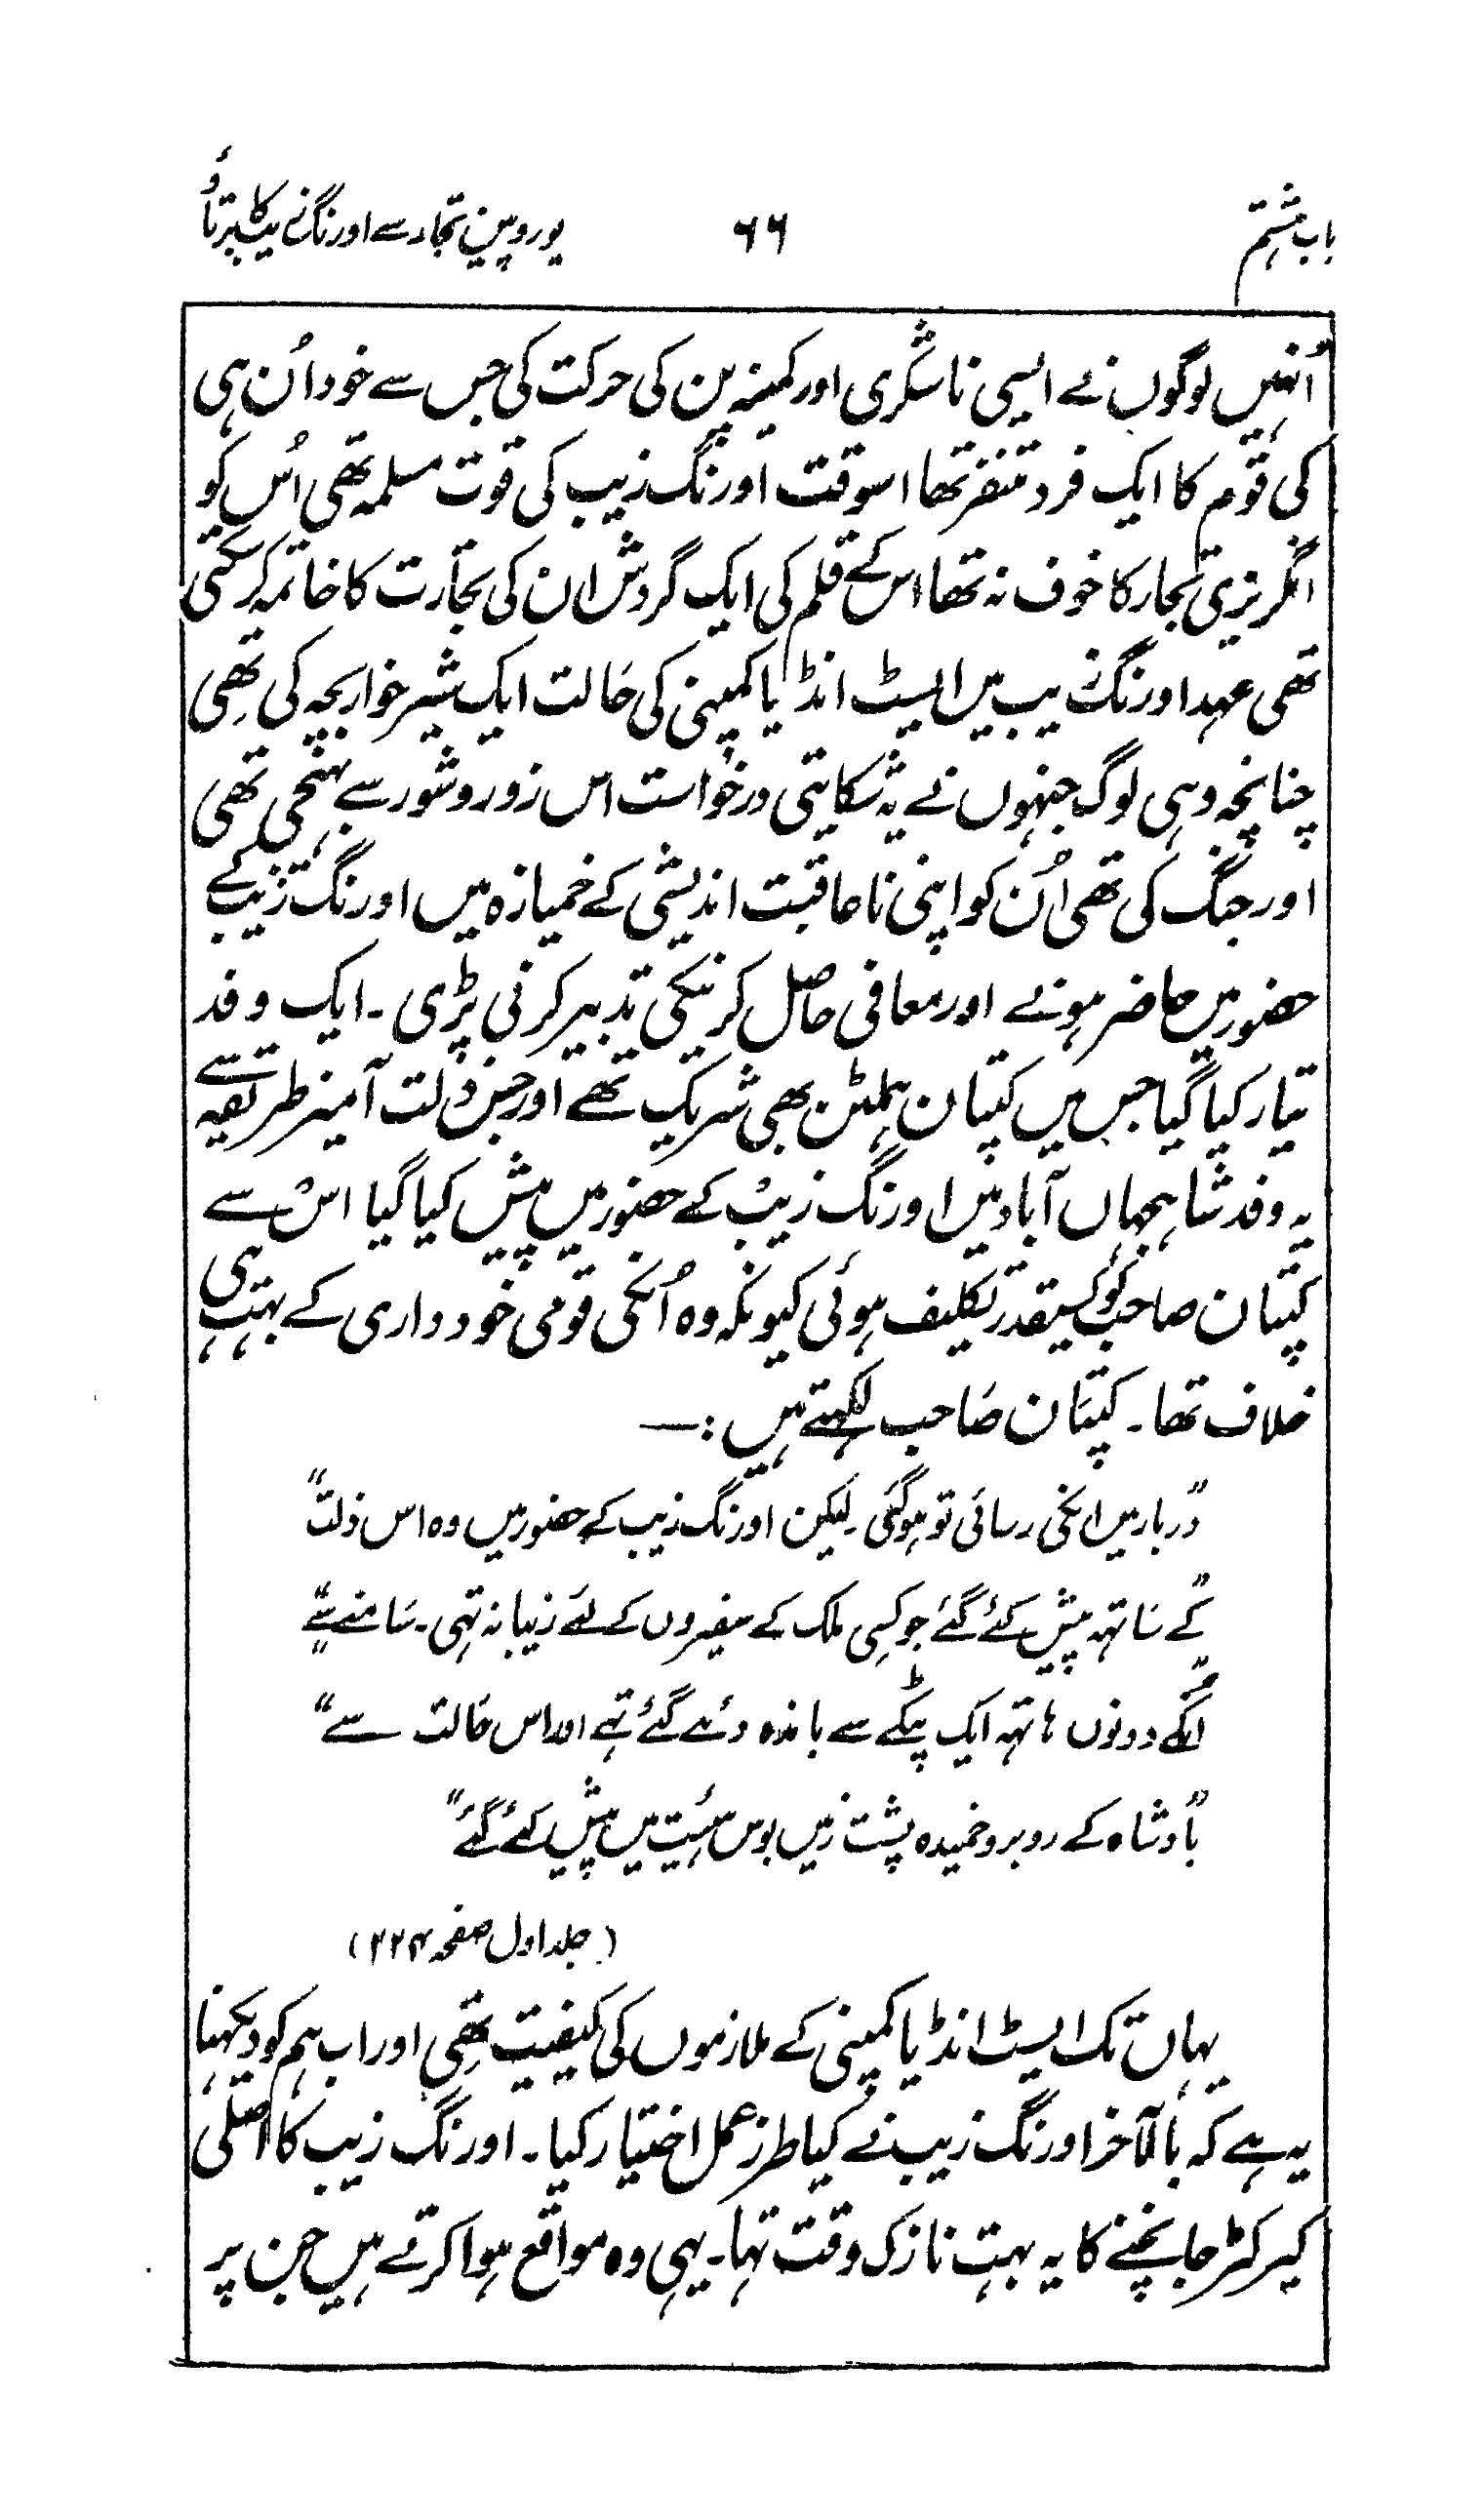 باب ہشتم ۶۶ یوروپین تجار سے اورنگ زیب کا برتاؤ
اُنھیں لوگوں نے ایسی ناشکری اور کمینہ پن کی حرکت کی جس سے خود اُن ہی
کی قوم کا ایک فرد متنفر تھا اسوقت اورنگ زیب کی قوت مسلمہ تھی اُس کو
انگریزی تجار کا خوف نہ تھا اس کے قلم کی ایک گردش ان کی تجارت کا خاتمہ کر سکتی
تھی عہد اورنگ زیب میں ایسٹ انڈیا کمپنی کی حالت ایک شیر خوار بچہ کی تھی
چنانچہ وہی لوگ جنہوں نے یہ شکایتی درخواست اس زور و شور سے بھیجی تھی
اور جنگ کی تھی اُن کو اپنی ناعاقبت اندیشی کے خمیازہ میں اورنگ زیب کے
حضور میں حاضر ہونے اور معافی حاصل کرنیکی تدبیر کرنی پڑی ۔ ایک وفد
تیار کیا گیا جس میں کپتان ہملٹن بھی شریک تھے اور جس ذلت آمیز طریقہ سے
یہ وفد شاہجہاں آباد میں اورنگ زیب کے حضور میں پیش کیا گیا اس سے
کپتان صاحب کو کسیقدر تکلیف ہوئی کیونکہ وہ اُنکی قومی خود داری کے بہت ہی
خلاف تھا ۔ کپتان صاحب لکہتے ہیں :—
"دربار میں انکی رسائی تو ہو گئی لیکن اورنگ زیب کے حضور میں وہ اس ذلت"
"کے ساتہہ پیش کئے گئے جو کسی ملک کے سفیروں کے لئے زیبا نہ تہی ۔ سامنے سے"
"انکے دونوں ہاتہہ ایک پٹکے سے باندہ دئے گئے تہے اور اس حالت سے"
"بادشاہ کے روبرو خمیدہ پشت زمیں بوس ہئیت میں پیش کئے گئے"
(جلد اول صفحہ ۲۲۴)
یہاں تک ایسٹ انڈیا کمپنی کے ملازموں کی کیفیت تھی اور اب ہم کو دیکہنا
یہ ہے کہ بالآخر اورنگ زیب نے کیا طرز عمل اختیار کیا ۔ اورنگ زیب کا اصلی
کیرکٹر جانچنے کا یہ بہت نازک وقت تہا ۔ یہی وہ مواقع ہوا کرتے ہیں جن پر